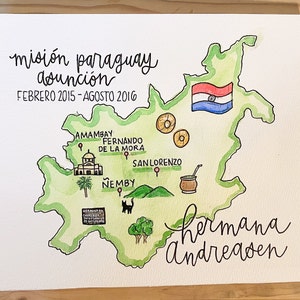 misión paraguay
asunción
FEBRERO 2015 - AGOSTO 2016
AMAMBAY
FERNANDO
DE LA MORA
SAN LORENZO
ÑEMBY
hermana
andreasen